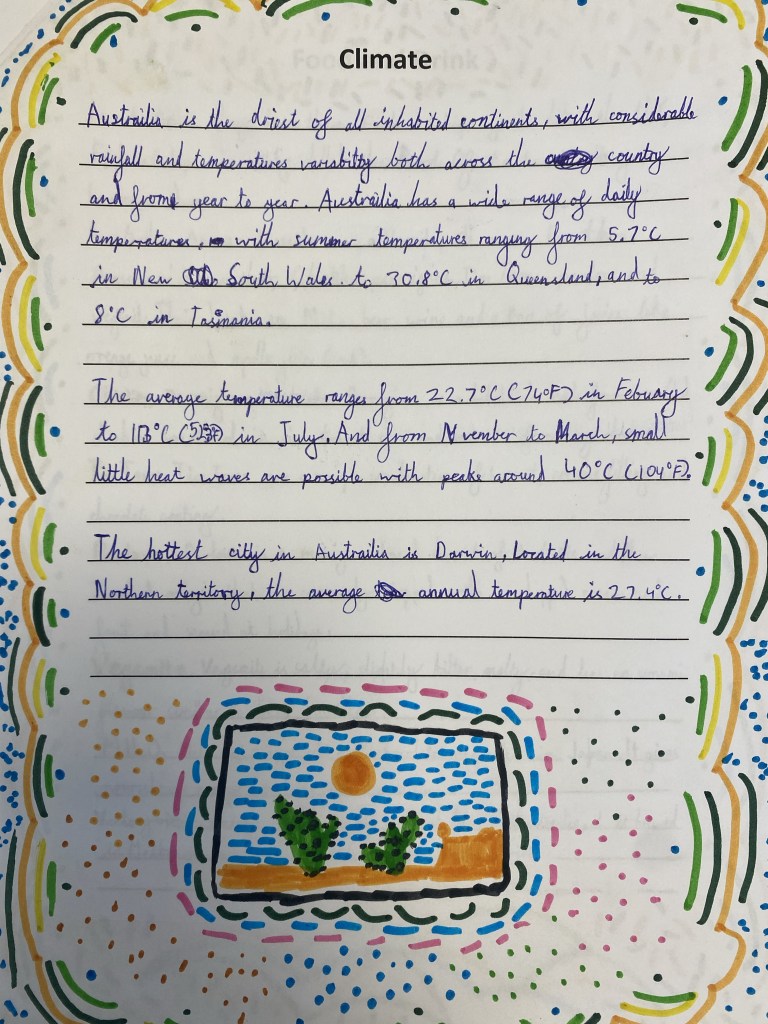 Climate
Austrailia is the driest of all inhabited continents, with considerable
rainfall and temperatures variability both across the country
and from year to year. Austrailia has a wide range of daily
temperatures, with summer temperatures ranging from 5.7°C
in New South Wales. to 30.8°C in Queensland, and to
8°C in Tasmania.
The average temperature ranges from 22.7°C (74°F) in Febuary
to in July. And from Nvember to March, small
little heat waves are possible with peaks around 40°C (104°F).
The hottest city in Austrailia is Darwin, Located in the
Northern territory, the average annual temperature is 27.4°C.